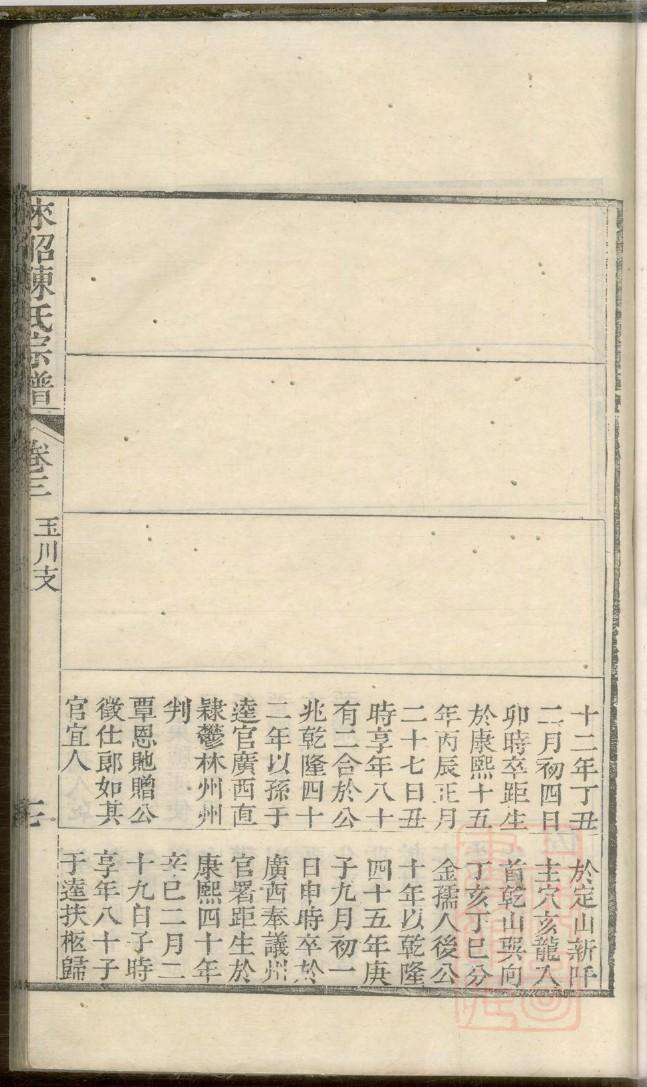 十二年丁丑
二月初四日
卯時卒距生
於康熙十五
年丙辰正月
二十七日丑
時享年八十
有二合於公
兆乾隆四十
二年以孫于
逵官廣西直
隸鬱林州州
判
覃恩貤贈公
徵仕郎如其
官宜人
於定山新阡
主穴亥龍入
首乾山巽向
丁亥丁巳分
金孺人後公
十年以乾隆
四十五年庚
子九月初一
日申時卒於
廣西奉議州
官署距生於
康熙四十年
辛巳二月二
十九日子時
享年八十子
于逵扶柩歸
陳氏宗譜
卷三
玉川支